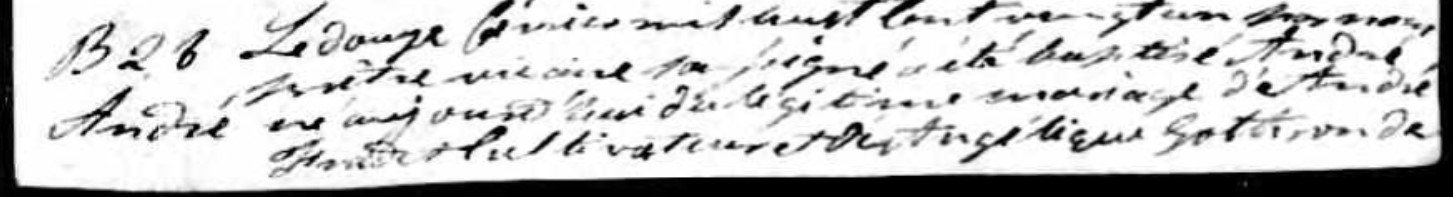 B 26 Le douze Février mil huit cent vingt un par nous,
prêtre vicaire soussigné a été baptisé André
André né aujourd'hui du légitime mariage d'André
cultivateur et de Angélique Gothron de